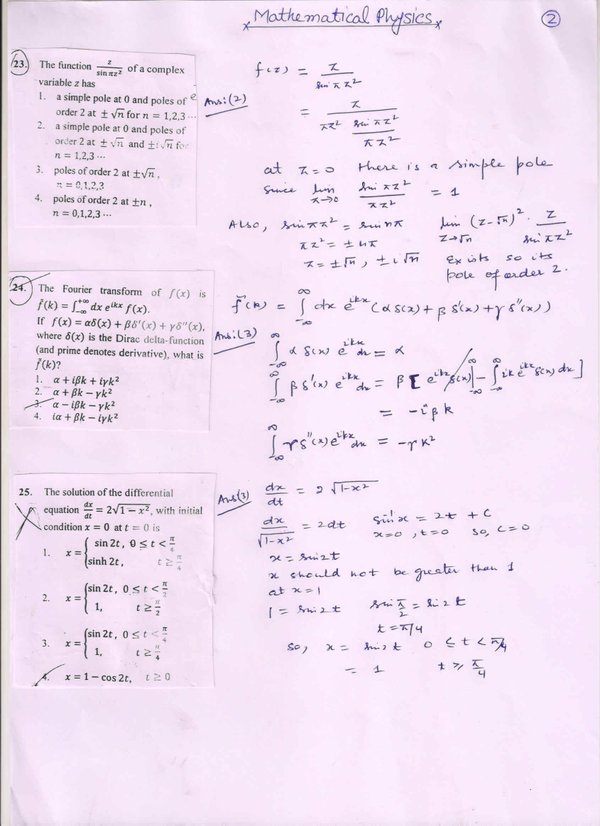 Mathematical Physics
2
23. The function z/(sin πz²) of a complex
variable z has
1. a simple pole at 0 and poles of
order 2 at ± √n for n = 1,2,3 ⋯
2. a simple pole at 0 and poles of
order 2 at ± √n and ±i √n for
n = 1,2,3 ⋯
3. poles of order 2 at ±√n,
n = 0,1,2,3
4. poles of order 2 at ±n,
n = 0,1,2,3 ⋯
Ans: (2)
f(z) = z/(sin πz²)
= z/(πz² (sin πz²)/(πz²))
at z=0 there is a simple pole
since lim z→0 (sin πz²)/(πz²) = 1
Also, sin πz² = sin nπ
πz² = ± nπ
z = ±√n, ± i√n
lim z→√n (z-√n)² · z/(sin πz²)
Exists so its
pole of order 2.
24. The Fourier transform of f(x) is
f̃(k) = ∫_{-∞}^{+∞} dx e^{ikx} f(x).
If f(x) = αδ(x) + βδ′(x) + γδ″(x),
where δ(x) is the Dirac delta-function
(and prime denotes derivative), what is
f̃(k)?
1. α + iβk + iγk²
2. α + βk − γk²
3. α − iβk − γk²
4. iα + βk − iγk²
Ans: (3)
f̃(k) = ∫_{-∞}^{∞} dx e^{ikx} (αδ(x) + β δ′(x) + γ δ″(x))
∫_{-∞}^{∞} α δ(x) e^{ikx} dx = α
∫_{-∞}^{∞} β δ′(x) e^{ikx} dx = β [e^{ikx} δ(x)|_{-∞}^{∞} − ∫_{-∞}^{∞} ik e^{ikx} δ(x) dx]
= −iβk
∫_{-∞}^{∞} γ δ″(x) e^{ikx} dx = −γk²
25. The solution of the differential
equation dx/dt = 2√(1 − x²), with initial
condition x = 0 at t = 0 is
1. x = { sin 2t, 0 ≤ t < π/4
sinh 2t, t ≥ π/4
2. x = { sin 2t, 0 ≤ t < π/2
1, t ≥ π/2
3. x = { sin 2t, 0 ≤ t < π/4
1, t ≥ π/4
4. x = 1 − cos 2t, t ≥ 0
Ans (3)
dx/dt = 2 √(1-x²)
dx/√(1-x²) = 2dt
sin⁻¹x = 2t + C
x=0, t=0 so, C=0
x = sin2t
x should not be greater than 1
at x=1
1 = sin2t
sin π/2 = sin 2t
t = π/4
so, x = sin2t 0 ≤ t < π/4
= 1 t ≥ π/4